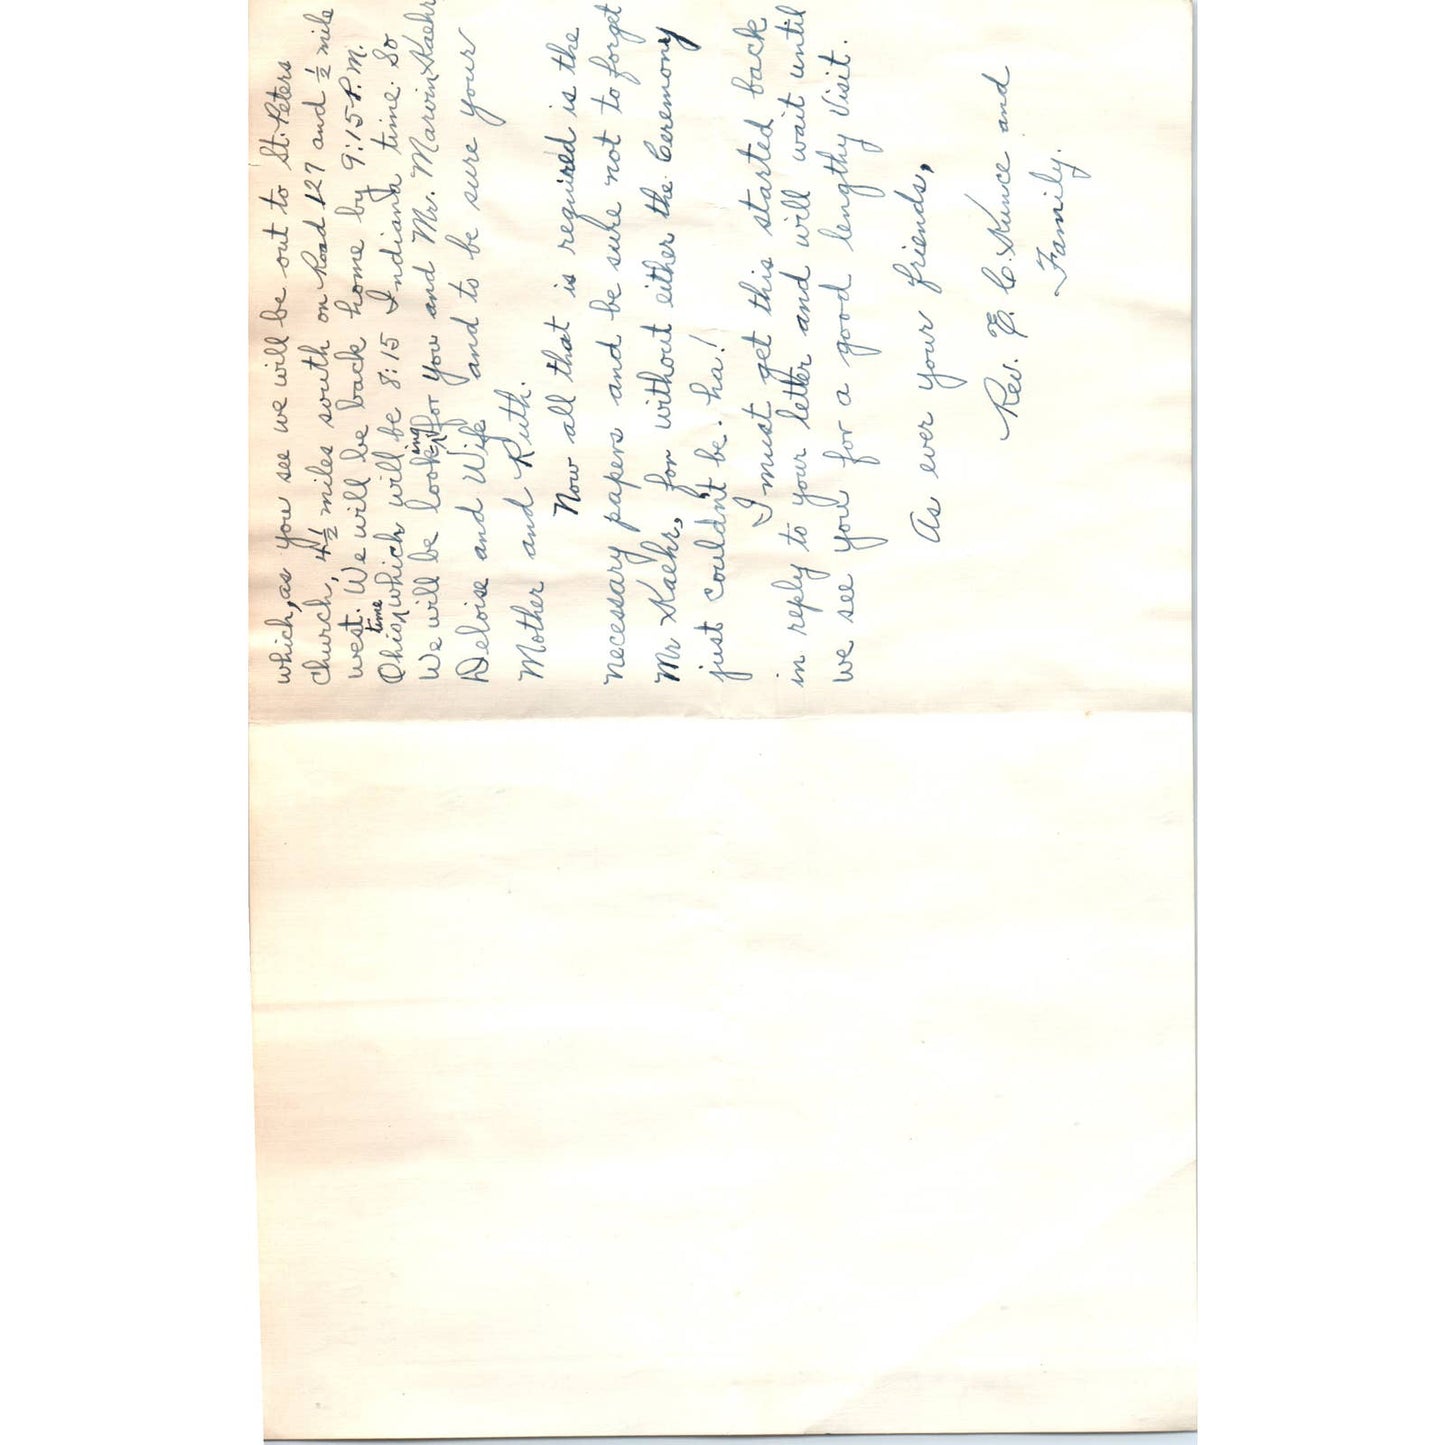 which, as you see we will be out to St. Peters
Church, 4½ miles south on Road 127 and ½ mile
west. We will be back home by 9:15 P.M.
Ohio time which will be 8:15 Indiana time. So
We will be looking for you and Mr. Marvin Kaehr
Deloise and Wife and to be sure your
Mother and Ruth.
Now all that is required is the
necessary papers and be sure not to forget
Mr Kaehr, for without either the Ceremony
just couldn't be. ha!
I must get this started back
in reply to your letter and will wait until
we see you for a good lengthy visit.
As ever your friends,
Rev. E. C. Kunce and
Family.